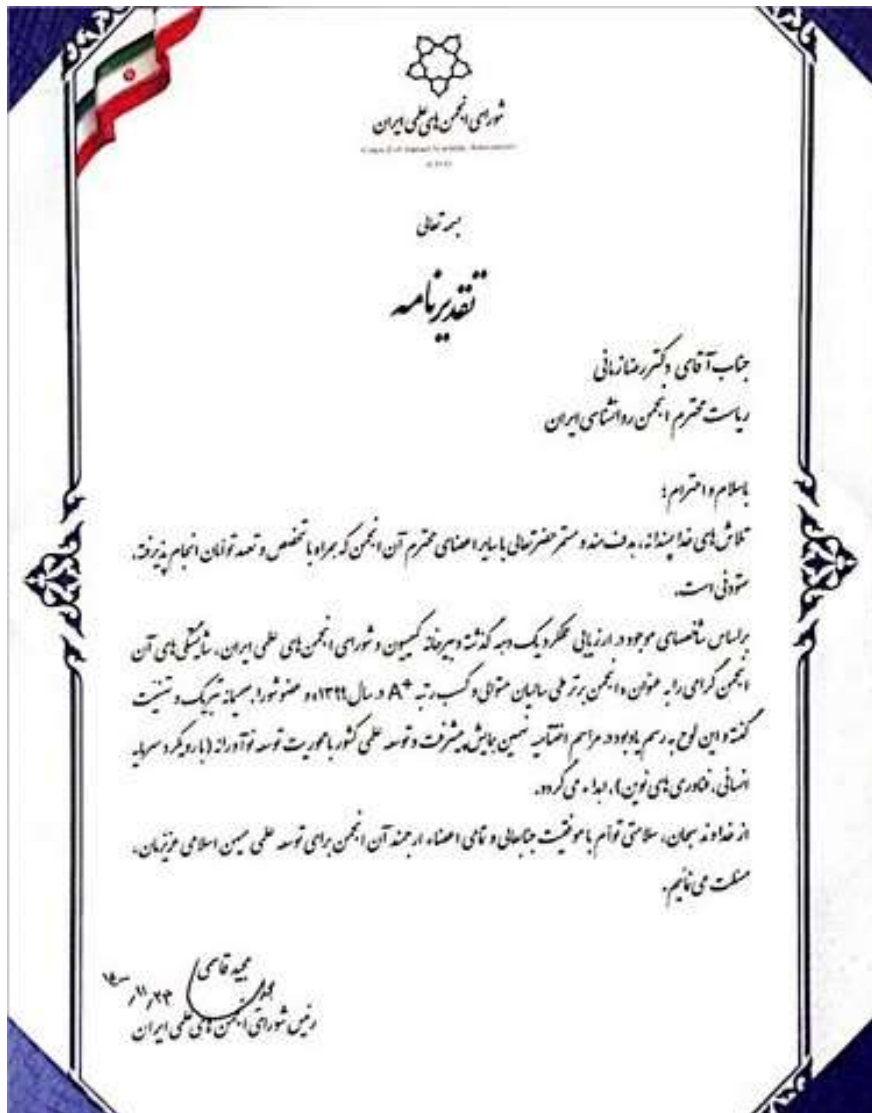 شورای انجمن‌های علمی ایران
Council of Iranian Scientific Associations
بسمه تعالی
تقدیرنامه
جناب آقای دکتر رضا زمانی
ریاست محترم انجمن روانشناسی ایران
با سلام و احترام؛
تلاش‌های خداپسندانه، هدف‌مند و مستمر حضرتعالی با سایر اعضای محترم آن انجمن که همراه با تخصص و تعهد توأمان انجام پذیرفته،
ستودنی است.
براساس شاخصهای موجود در ارزیابی عملکرد یک دهه گذشته دبیرخانه کمیسیون و شورای انجمن‌های علمی ایران، شایستگی‌های آن
انجمن گرامی را به عنوان «انجمن برتر ملی سالیان متوالی و کسب رتبه A+ در سال ۱۳۹۹» و عضو شورا، صمیمانه تبریک و تهنیت
گفته و این لوح به رسم یادبود در مراسم اختتامیه نهمین همایش پیشرفت و توسعه علمی کشور با محوریت توسعه نوآورانه (با رویکرد سرمایه
انسانی، فناوری‌های نوین)، اهداء می‌گردد.
از خداوند سبحان، سلامتی توأم با موفقیت جنابعالی و تمامی اعضاء ارجمند آن انجمن برای توسعه علمی میهن اسلامی عزیزمان،
مسئلت می‌نمائیم.
مجید قاسمی
رئیس شورای انجمن‌های علمی ایران